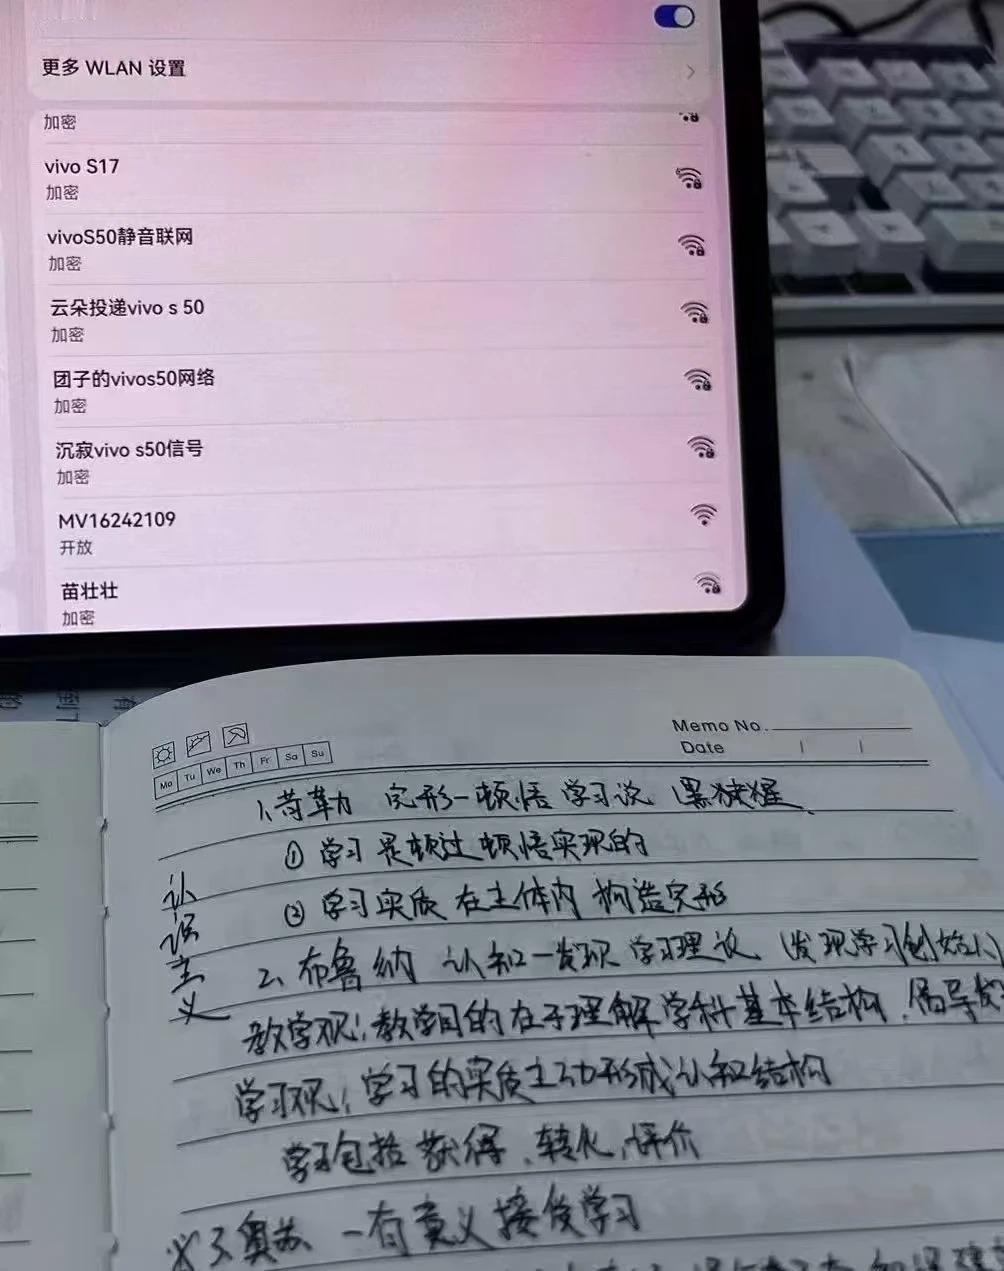 更多 WLAN 设置
加密
vivo S17
加密
vivoS50静音联网
加密
云朵投递vivo s 50
加密
团子的vivos50网络
加密
沉寂vivo s50信号
加密
MV16242109
开放
苗壮壮
加密
Memo No.
Date
Mo Tu We Th Fr Sa Su
1、苛勒 完形-顿悟学习说 黑猩猩
① 学习是通过顿悟实现的
② 学习实质在主体内构造完形
认识主义
2、布鲁纳 认知-发现学习理论 (发现学习创始人)
教学观:教学目的在于理解学科基本结构.倡导发
学习观:学习的实质主动形成认知结构
学习包括获得、转化、评价
3、奥苏 -有意义接受学习